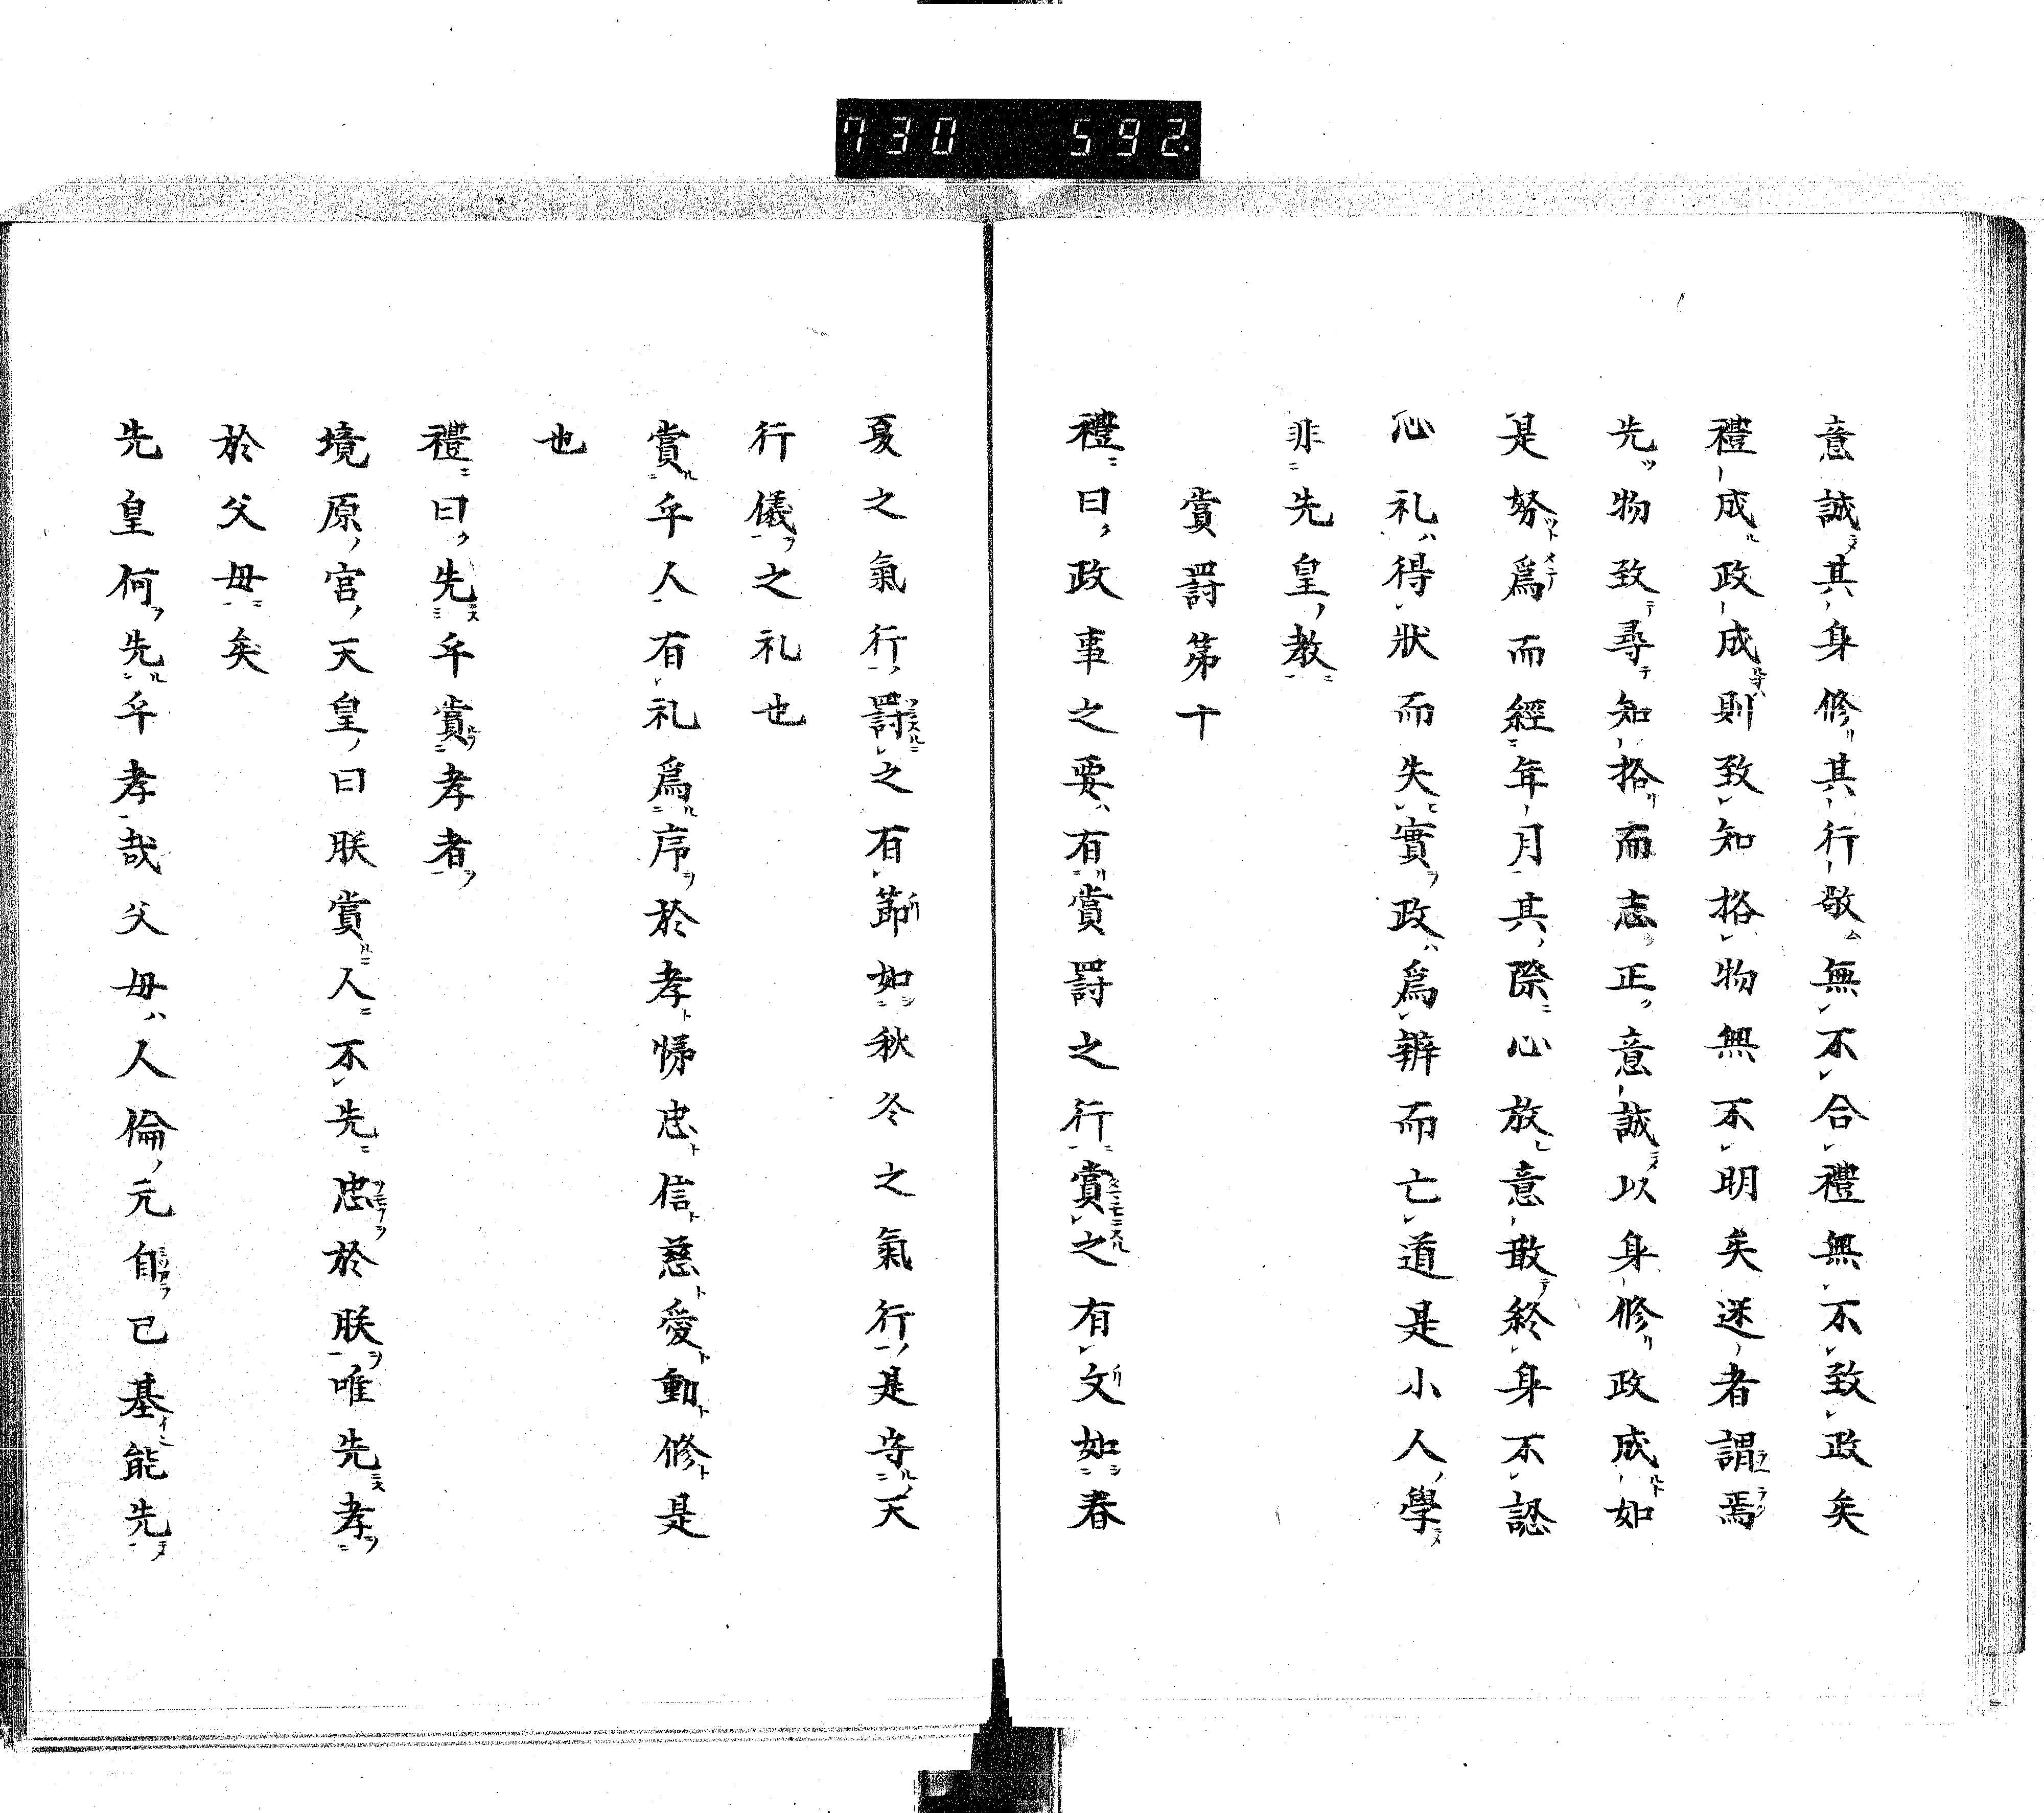 730 592
意誠其身修其行敬無不合禮無不致政矣
禮成政成則致知格物無不明矣迷者謂焉
先物致尋知格而志正意誠以身修政成如
是努爲而經年月其際心放意敢終身不認
心礼得狀而失實政爲辨而亡道是小人學
非先皇教
賞罸第十
禮曰政事之要有賞罸之行賞之有文如春
夏之氣行罸之有節如秋冬之氣行是守天
行儀之礼也
賞乎人有礼爲序於孝悌忠信慈愛動修是
也
禮曰先乎賞孝者
境原宮天皇曰朕賞人不先忠於朕唯先孝
於父毋矣
先皇何先乎孝哉父毋人倫元自己基能先